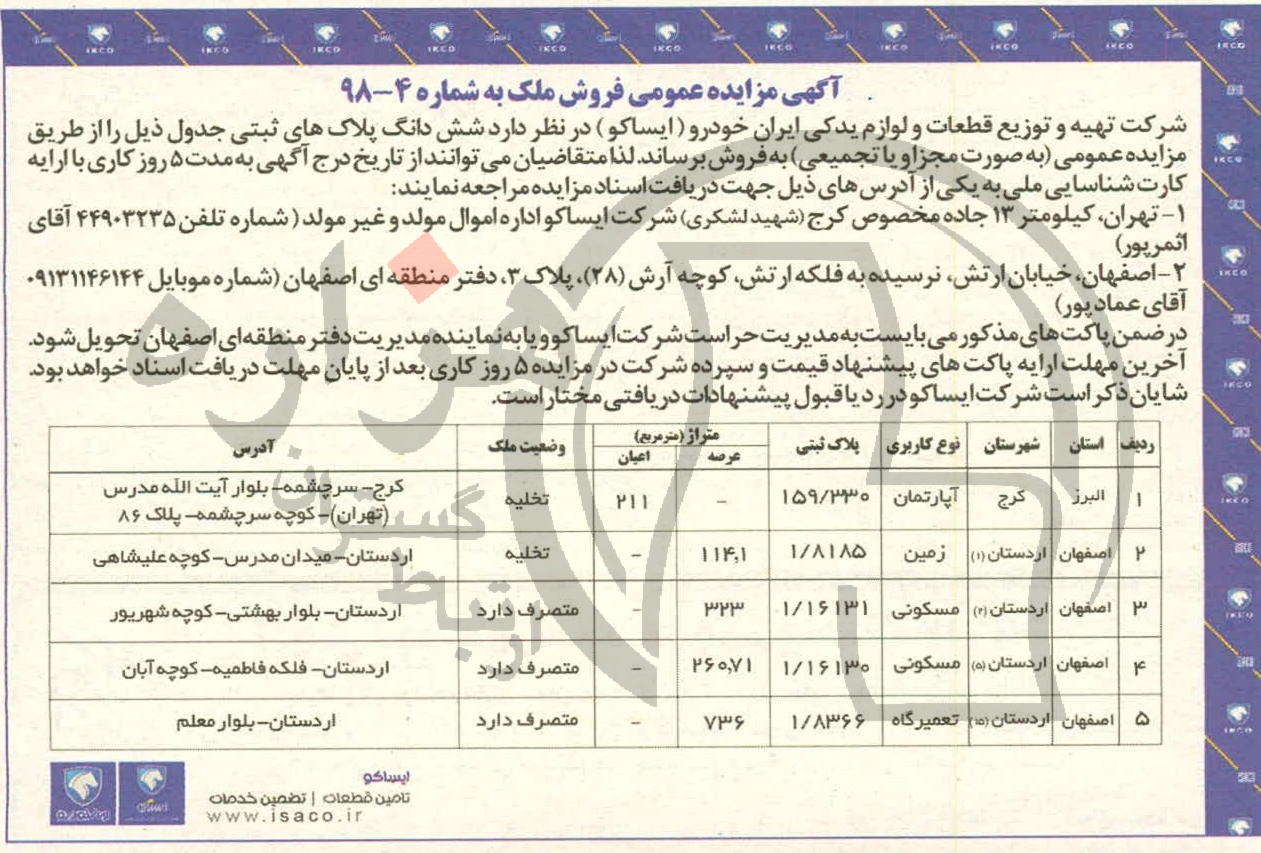 آگهی مزایده عمومی فروش ملک به شماره ۴-۹۸
شرکت تهیه و توزیع قطعات و لوازم یدکی ایران خودرو (ایساکو) در نظر دارد شش دانگ پلاک های ثبتی جدول ذیل را از طریق
مزایده عمومی (به صورت مجزا و یا تجمیعی) به فروش برساند. لذا متقاضیان می توانند از تاریخ درج آگهی به مدت ۵ روز کاری با ارایه
کارت شناسایی ملی به یکی از آدرس های ذیل جهت دریافت اسناد مزایده مراجعه نمایند:
۱- تهران، کیلومتر ۱۳ جاده مخصوص کرج (شهید لشکری) شرکت ایساکو اداره اموال مولد و غیر مولد (شماره تلفن ۴۴۹۰۳۲۳۵ آقای
اثمرپور)
۲- اصفهان، خیابان ارتش، نرسیده به فلکه ارتش، کوچه آرش (۲۸)، پلاک ۳، دفتر منطقه ای اصفهان (شماره موبایل ۰۹۱۳۱۱۴۶۱۴۴
آقای عمادپور)
در ضمن پاکت های مذکور می بایست به مدیریت حراست شرکت ایساکو و یا به نماینده مدیریت دفتر منطقه ای اصفهان تحویل شود.
آخرین مهلت ارایه پاکت های پیشنهاد قیمت و سپرده شرکت در مزایده ۵ روز کاری بعد از پایان مهلت دریافت اسناد خواهد بود.
شایان ذکر است شرکت ایساکو در رد یا قبول پیشنهادات دریافتی مختار است.
ردیف استان شهرستان نوع کاربری پلاک ثبتی متراژ (مترمربع) عرصه اعیان وضعیت ملک آدرس
۱ البرز کرج آپارتمان ۱۵۹/۳۳۰ - ۲۱۱ تخلیه کرج- سرچشمه- بلوار آیت الله مدرس
(تهران)- کوچه سرچشمه- پلاک ۸۶
۲ اصفهان اردستان (۱) زمین ۱/۸۱۸۵ ۱۱۴,۱ - تخلیه اردستان- میدان مدرس- کوچه علیشاهی
۳ اصفهان اردستان (۲) مسکونی ۱/۱۶۱۳۱ ۳۲۳ - متصرف دارد اردستان- بلوار بهشتی- کوچه شهریور
۴ اصفهان اردستان (۵) مسکونی ۱/۱۶۱۳۰ ۲۶۰,۷۱ - متصرف دارد اردستان- فلکه فاطمیه- کوچه آبان
۵ اصفهان اردستان (۱۵) تعمیرگاه ۱/۸۳۶۶ ۷۳۶ - متصرف دارد اردستان- بلوار معلم
ایساکو
تامین قطعات | تضمین خدمات
www.isaco.ir
هزاره
گستران
ارتباط
IKCO